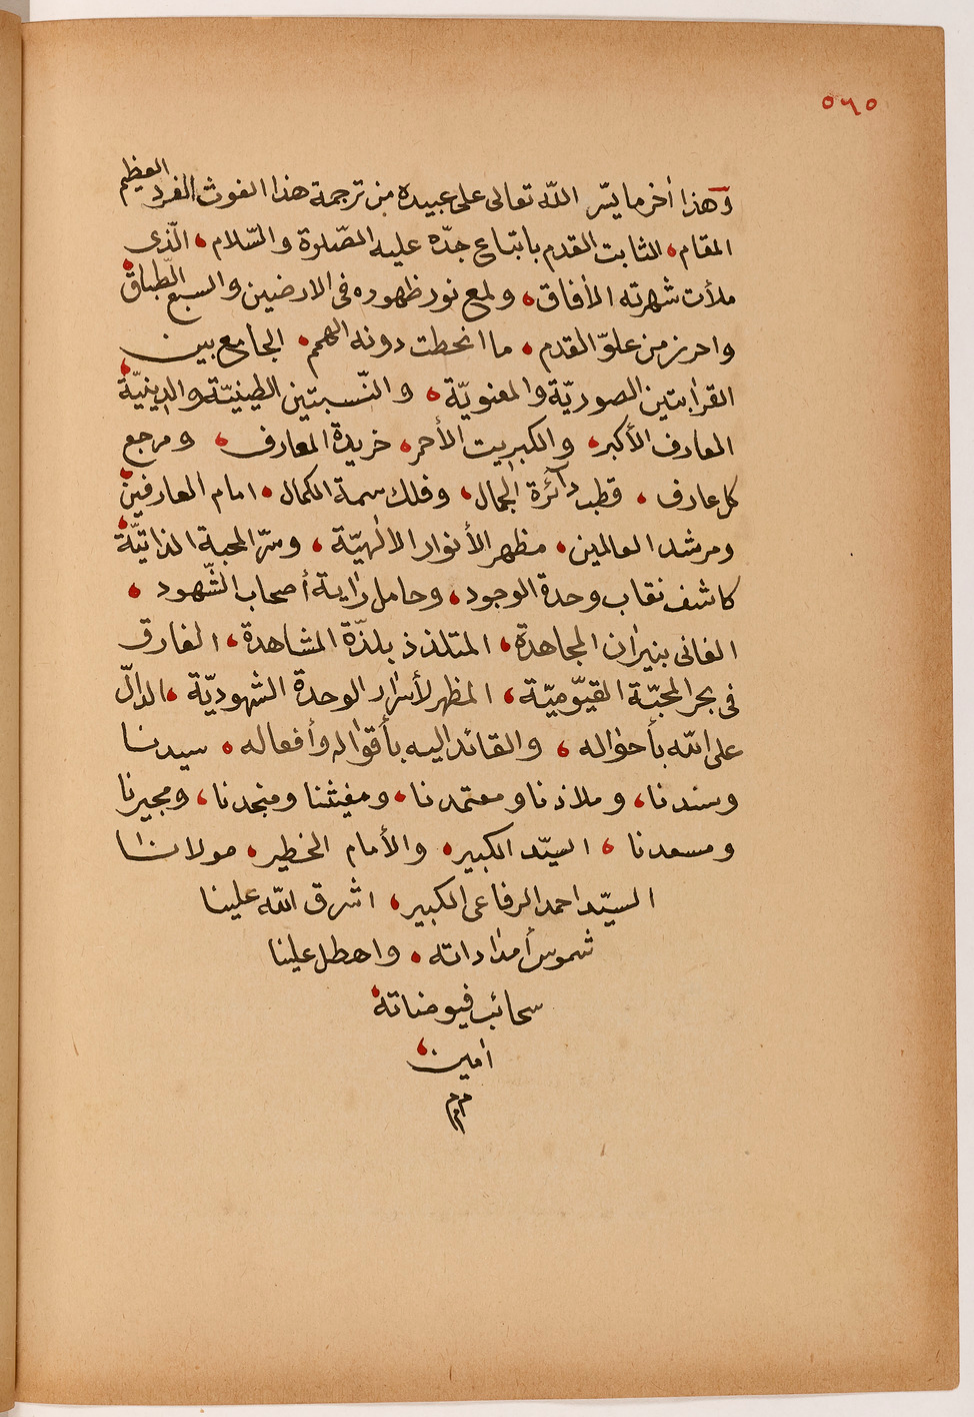 ٥٦٥
وهذا أخر ما يسّر اللّه تعالى على عبيده من ترجمة هذا الغوث الفرد العظيم
المقام، الثابت القدم باتباع جدّه عليه الصّلوة والسّلام، الّذى
ملأت شهرته الأفاق، ولمع نور ظهوره فى الارضين والسبع الطّباق،
واحرز من علوّ القدم، ما انحطت دونه الهمم، الجامع بين
القرابتين الصوريّة والمعنويّة، والنّسبتين الطينيّة والدينيّة،
العارف الأكبر، والكبريت الأحمر، خريدة المعارف، ومرجع
كل عارف، قطب دآئرة الجمال، وفلك سمة الكمال، امام العارفين،
ومرشد العالمين، مظهر الأنوار الالٰهيّة، وسرّ المحبة الذاتيّة،
كاشف نقاب وحدة الوجود، وحامل راية أصحاب الشّهود،
الفانى بنيران المجاهدة، المتلذذ بلذّة المشاهدة، الغارق
فى بحر المحبّة القيّوميّة، المظهر لأسرار الوحدة الشهوديّة، الدالّ
على اللّه بأحواله، والقائد اليه بأقواله وأفعاله، سيدنا
وسندنا، وملاذنا ومعتمدنا، ومغيثنا ومنجدنا، ومجيرنا
ومسعدنا، السيّد الكبير، والأمام الخطير، مولانا
السيّد احمد الرفاعى الكبير، اشرق اللّه علينا
شموس أمداداته، واهطل علينا
سحائب فيوضاته،
امين،
م م م